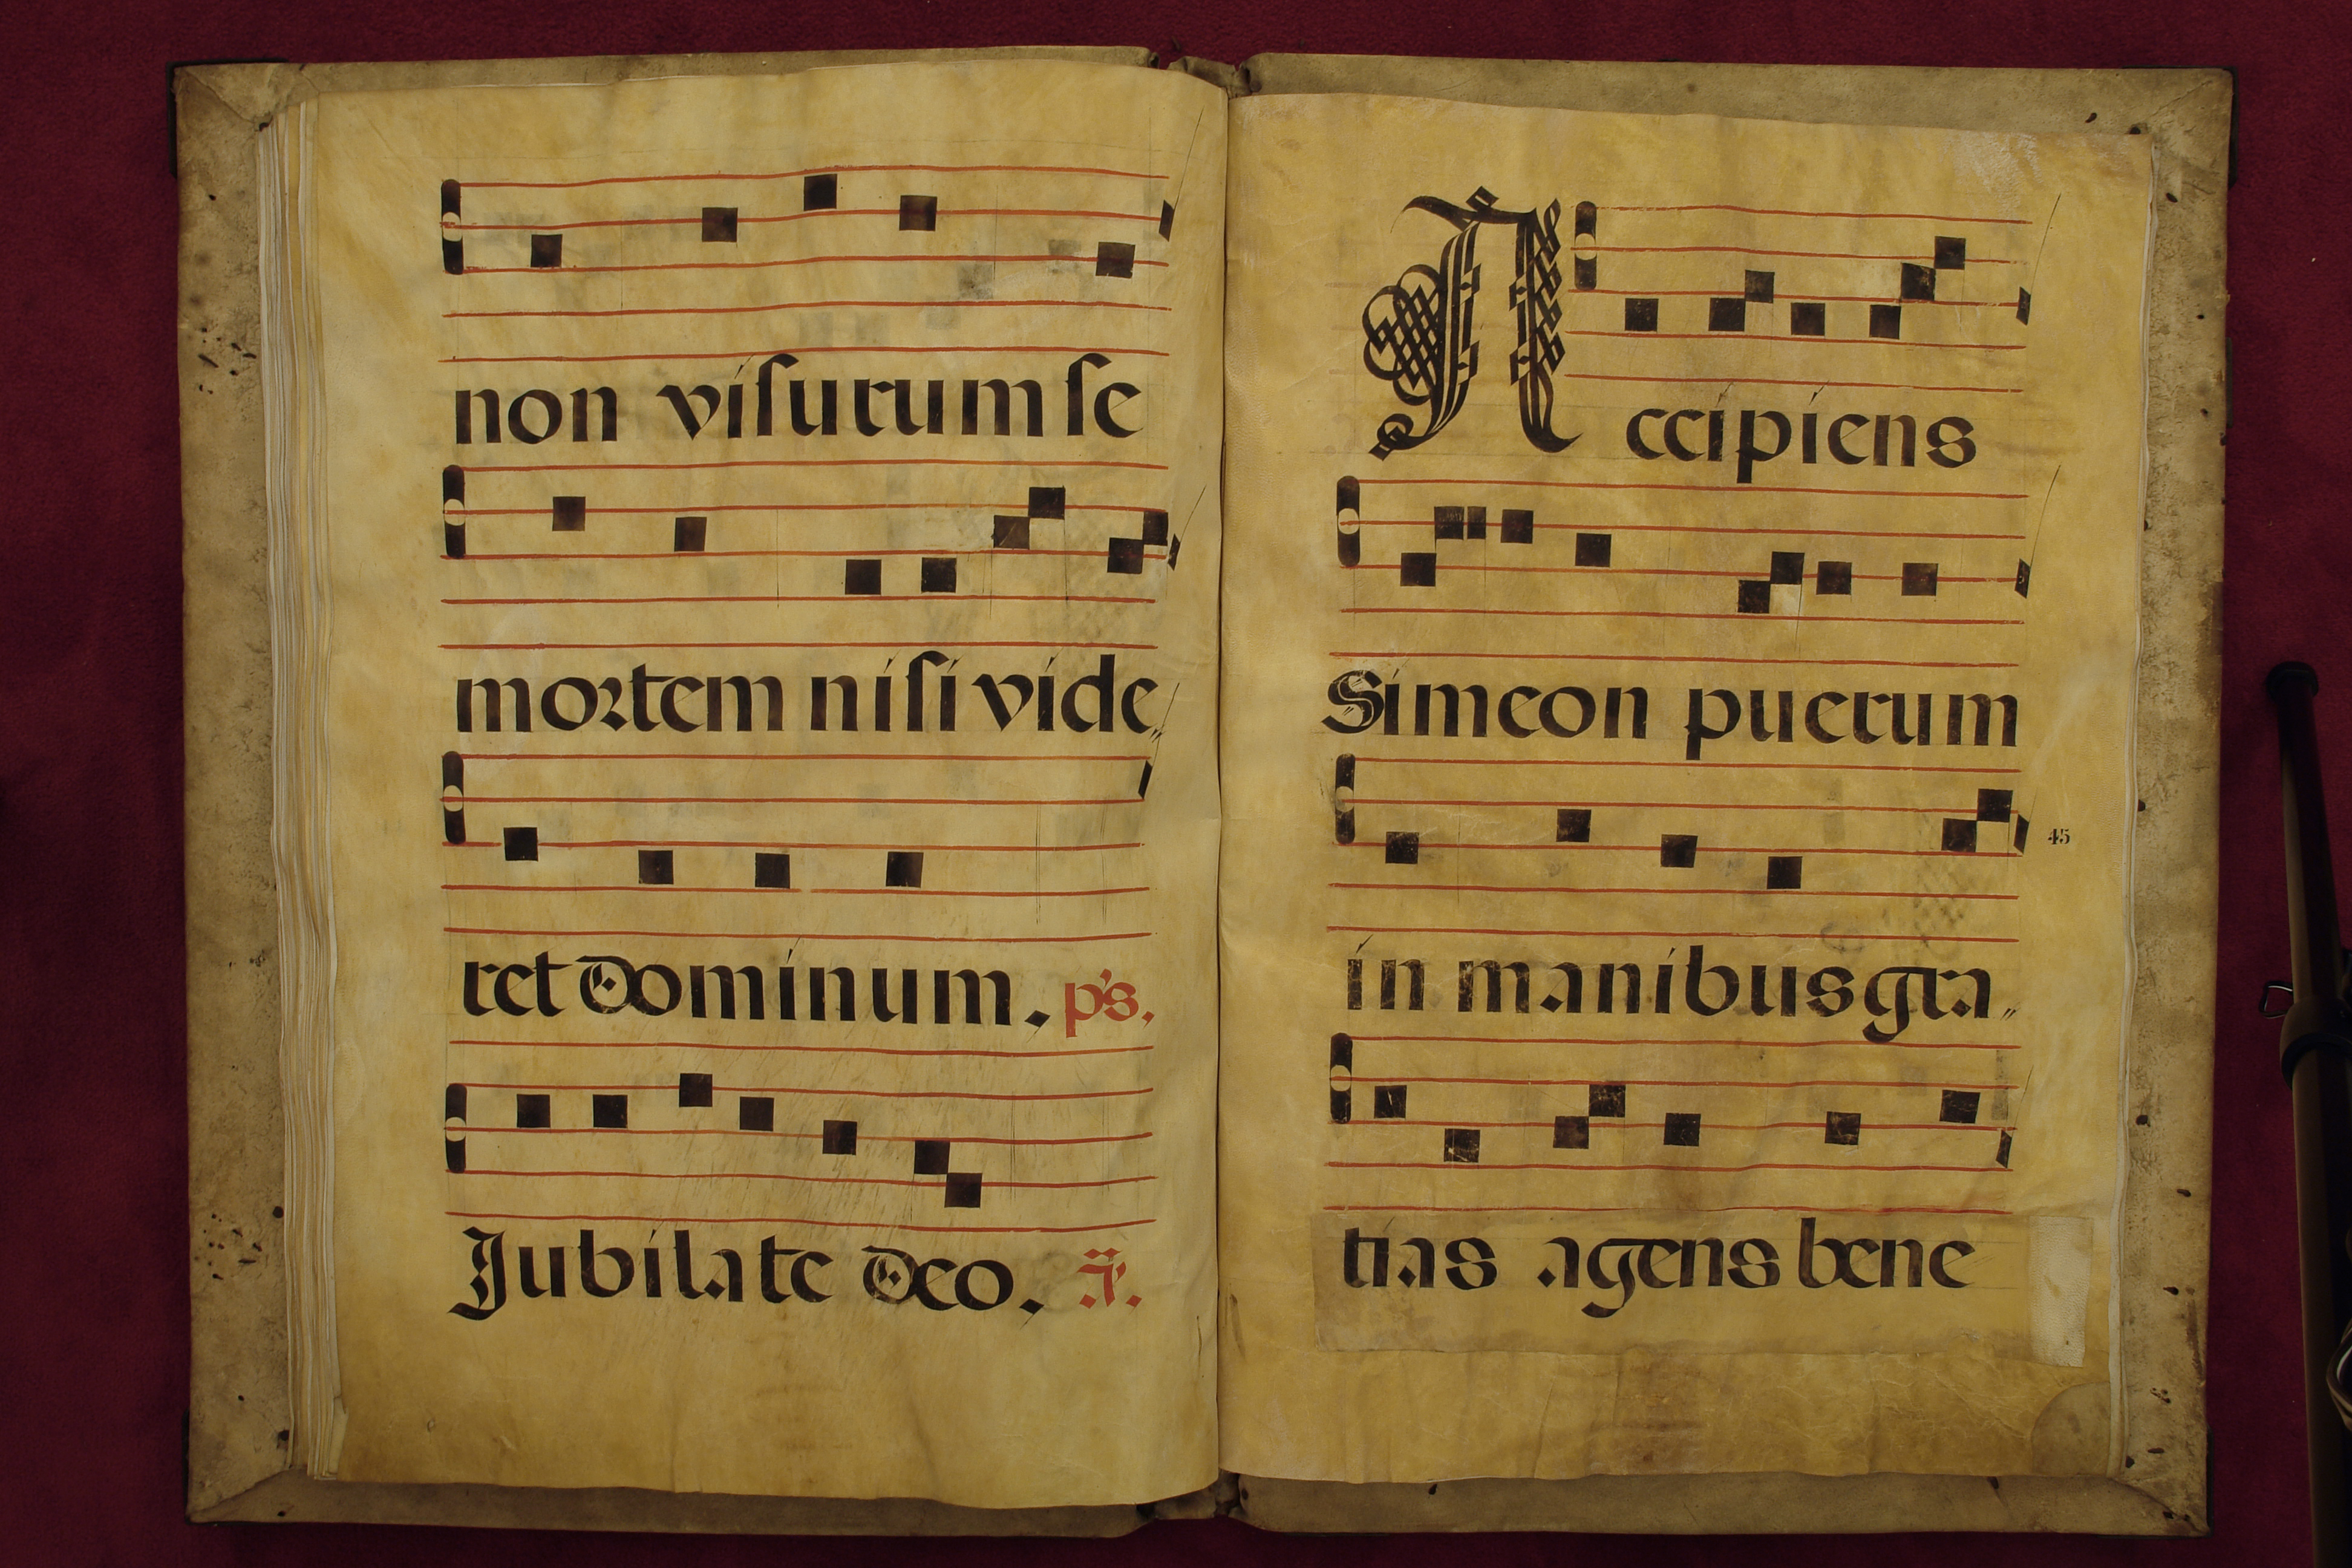 non viſurum ſe
mortem niſi vide„
ret Dominum. p̄s.
Jubilate Deo. ā.
Accipiens
Simeon puerum
in manibus gra„
45
tias agens bene